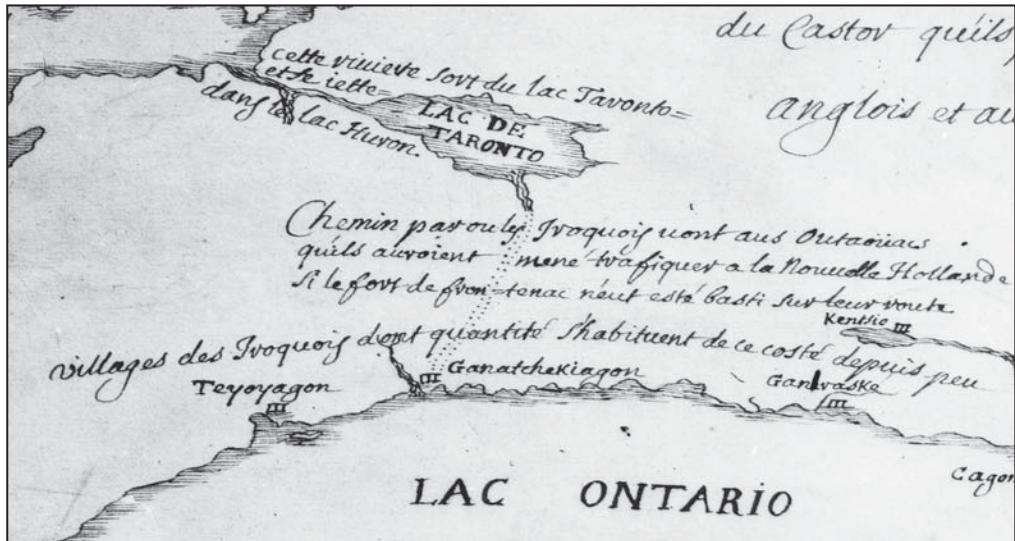 du Castor qu'ils
anglois et au
cette riviere sort du lac Taronto=
et se iette=
dans le lac Huron.
LAC DE
TARONTO
Chemin par ou les Iroquois vont aus Outaoüacs
qu'ils auroient mené trafiquer a la Nouvelle Hollande
si le fort de fron=tenac n'eut esté basti sur leur route
Kentsio
villages des Iroquois dont quantité s'habituent de ce costé depuis peu
Teyoyagon
Ganatchekiagon
Ganaraske
Cagon
LAC ONTARIO